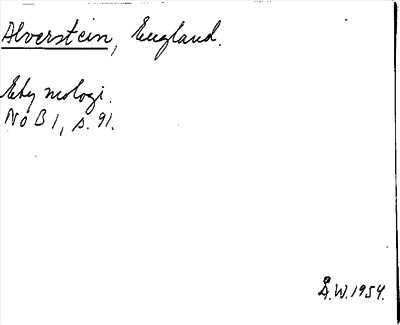 Alverstein, England.
Etymologi.
NoB 1, s. 91.
Å.W. 1954.